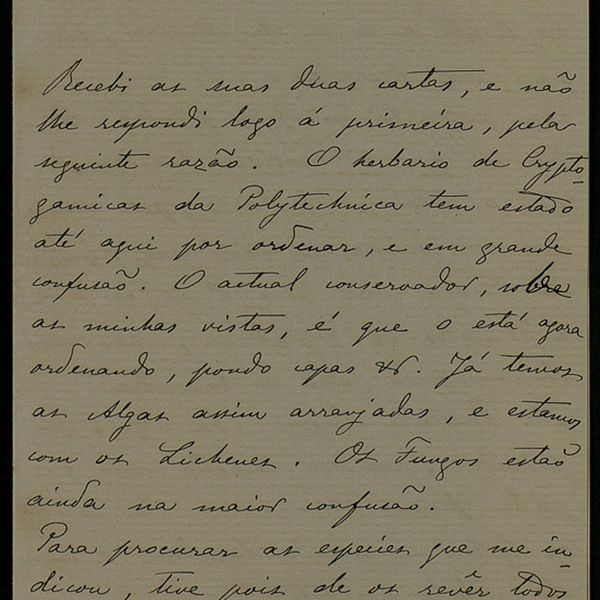 Recebi as suas duas cartas, e não
lhe respondi logo á primeira, pela
seguinte razão. O herbario de Crypto-
gamicas da Polytechnica tem estado
até aqui por ordenar, e em grande
confusão. O actual conservador, sobre
as minhas vistas, é que o está agora
ordenando, pondo capas &. Já temos
as Algas assim arranjadas, e estamos
com os Lichenes. Os Fungos estão
ainda na maior confusão.
Para procurar as especies que me in-
dicou, tive pois de os revêr todos